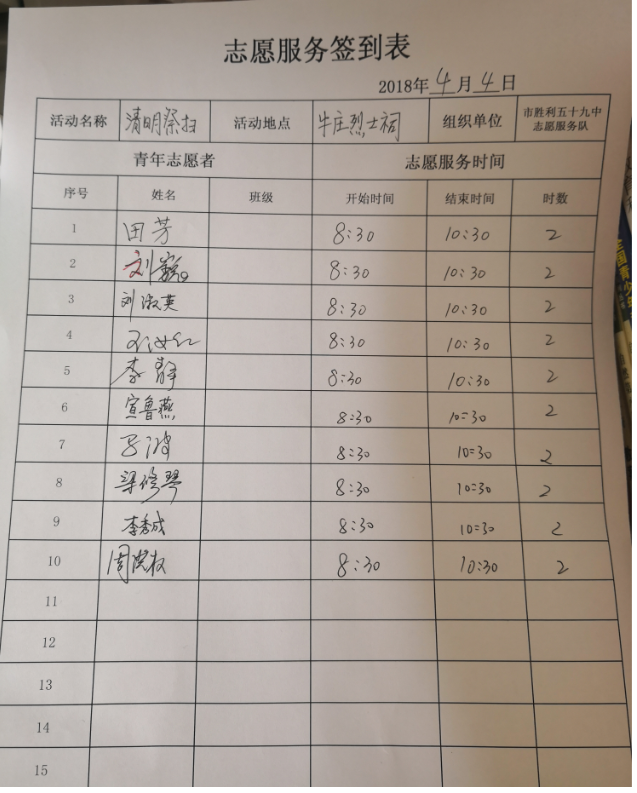 志愿服务签到表
2018年4月4日
活动名称 清明祭扫 活动地点 牛庄烈士祠 组织单位 市胜利五十九中志愿服务队
青年志愿者 志愿服务时间
序号 姓名 班级 开始时间 结束时间 时数
1 田芳 8:30 10:30 2
2 刘 8:30 10:30 2
3 刘淑英 8:30 10:30 2
4 8:30 10:30 2
5 李静 8:30 10:30 2
6 宣鲁燕 8:30 10:30 2
7 8:30 10:30 2
8 梁修琴 8:30 10:30 2
9 李秀成 8:30 10:30 2
10 周洪权 8:30 10:30 2
11
12
13
14
15